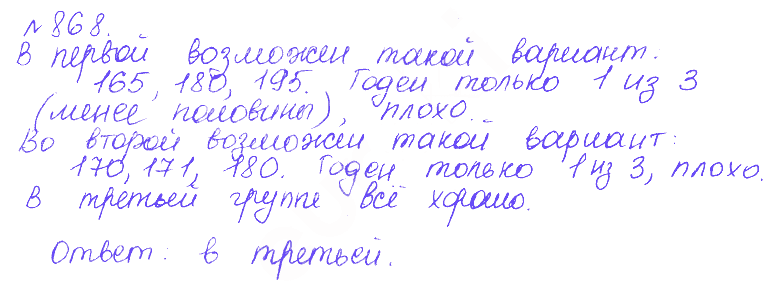 №868.
В первой возможен такой вариант:
165, 180, 195. Годен только 1 из 3
(менее половины), плохо.
Во второй возможен такой вариант:
170, 171, 180. Годен только 1 из 3, плохо.
В третьей группе всё хорошо.
Ответ: в третьей.